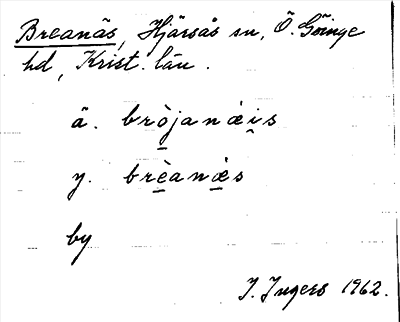 Breanäs, Hjärsås sn, Ö. Göinge
hd, Krist. län.
ä. bròjanǽis
y. brèanǽs
by
I. Ingers 1962.